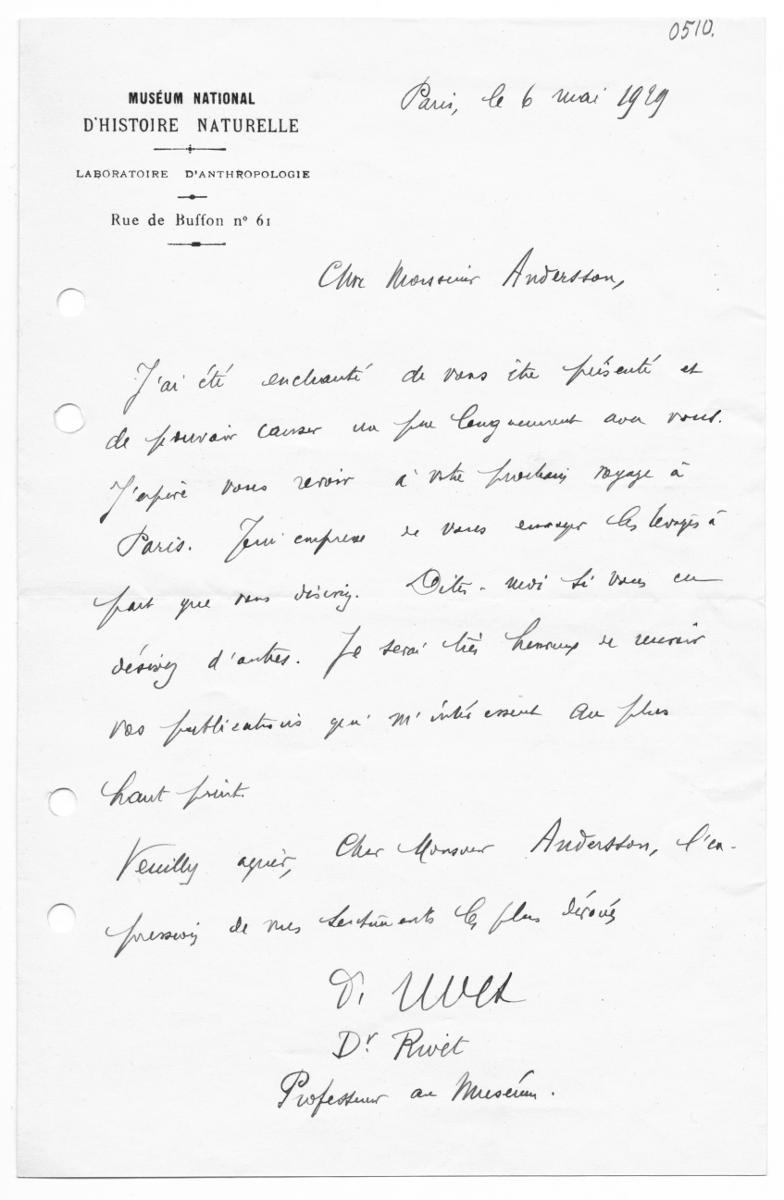 0510.
MUSÉUM NATIONAL
D'HISTOIRE NATURELLE
LABORATOIRE D'ANTHROPOLOGIE
Rue de Buffon nº 61
Paris, le 6 mai 1929
Cher Monsieur Andersson,
J'ai été enchanté de vous être présenté et
de pouvoir causer un peu longuement avec vous.
J'espère vous revoir à votre prochain voyage à
Paris. Je m'empresse de vous envoyer les tirages à
part que vous désirez. Dites-moi si vous en
désirez d'autres. Je serai très heureux de recevoir
vos publications qui m'intéressent au plus
haut point.
Veuillez agréer, Cher Monsieur Andersson, l'ex-
pression de mes sentiments les plus dévoués
Dr Rivet
Dr Rivet
Professeur au Muséum.